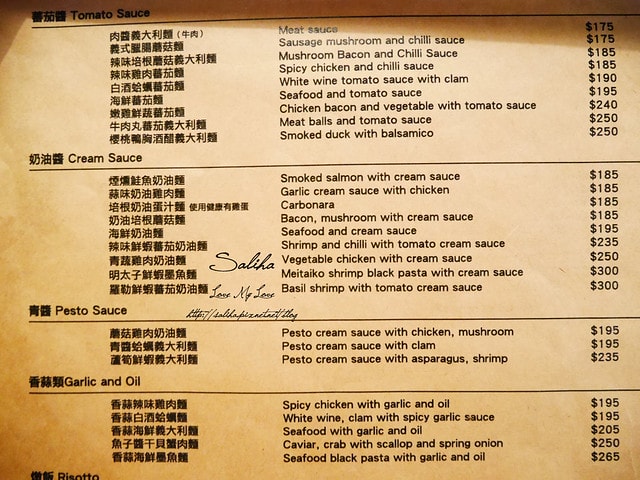 蕃茄醬 Tomato Sauce
肉醬義大利麵 (牛肉) Meat sauce $175
義式臘腸蘑菇麵 Sausage mushroom and chilli sauce $175
辣味培根蘑菇義大利麵 Mushroom Bacon and Chilli Sauce $185
辣味雞肉蕃茄麵 Spicy chicken and chilli sauce $185
白酒蛤蠣蕃茄麵 White wine tomato sauce with clam $190
海鮮蕃茄麵 Seafood and tomato sauce $195
嫩雞鮮蔬蕃茄麵 Chicken bacon and vegetable with tomato sauce $240
牛肉丸蕃茄義大利麵 Meat balls and tomato sauce $250
櫻桃鴨胸酒醋義大利麵 Smoked duck with balsamico $250
奶油醬 Cream Sauce
煙燻鮭魚奶油麵 Smoked salmon with cream sauce $185
蒜味奶油雞肉麵 Garlic cream sauce with chicken $185
培根奶油蛋汁麵 使用健康有雞蛋 Carbonara $185
奶油培根蘑菇麵 Bacon, mushroom with cream sauce $185
海鮮奶油麵 Seafood and cream sauce $195
辣味鮮蝦蕃茄奶油麵 Shrimp and chilli with tomato cream sauce $235
青蔬雞肉奶油麵 Vegetable chicken with cream sauce $250
明太子鮮蝦墨魚麵 Meitaiko shrimp black pasta with cream sauce $300
羅勒鮮蝦蕃茄奶油麵 Basil shrimp with tomato cream sauce $300
Saliha
Love My Love
http://saliha.pixnet.net/blog
青醬 Pesto Sauce
蘑菇雞肉奶油麵 Pesto cream sauce with chicken, mushroom $195
青醬蛤蠣義大利麵 Pesto cream sauce with clam $195
蘆筍鮮蝦義大利麵 Pesto cream sauce with asparagus, shrimp $235
香蒜類Garlic and Oil
香蒜辣味雞肉麵 Spicy chicken with garlic and oil $195
香蒜白酒蛤蠣麵 White wine, clam with spicy garlic sauce $195
香蒜海鮮義大利麵 Seafood with garlic and oil $205
魚子醬干貝蟹肉麵 Caviar, crab with scallop and spring onion $250
香蒜海鮮墨魚麵 Seafood black pasta with garlic and oil $265
燉飯 Risotto